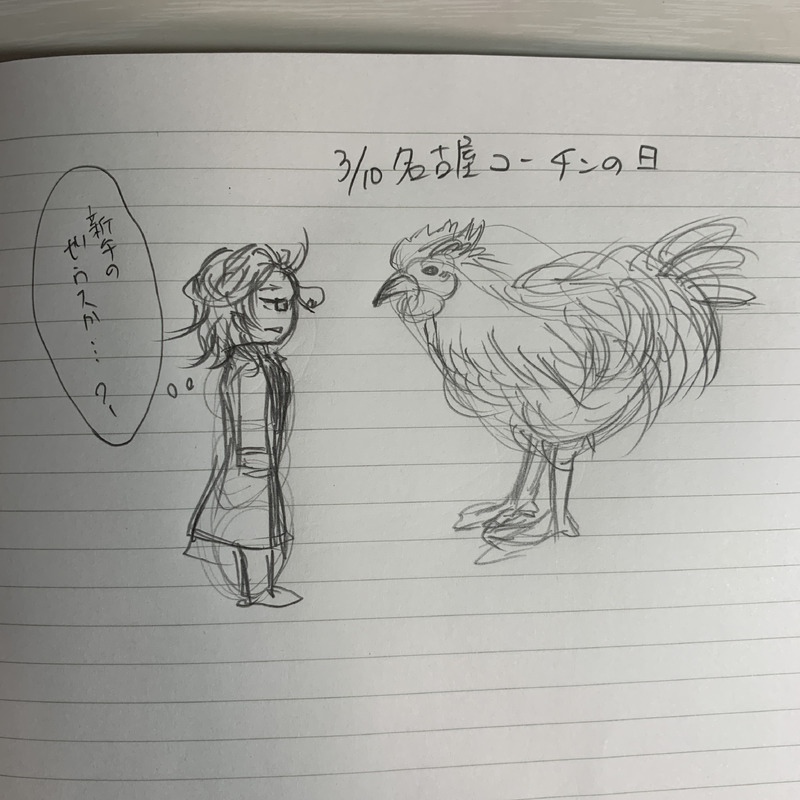 3/10 名古屋コーチンの日
新手の
ゼウスか…?